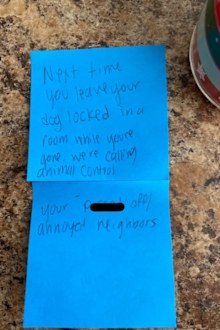 Next time
you leave your
dog locked in a
room while you're
gone. we're calling
animal control.
your off/
annoyed neighbors